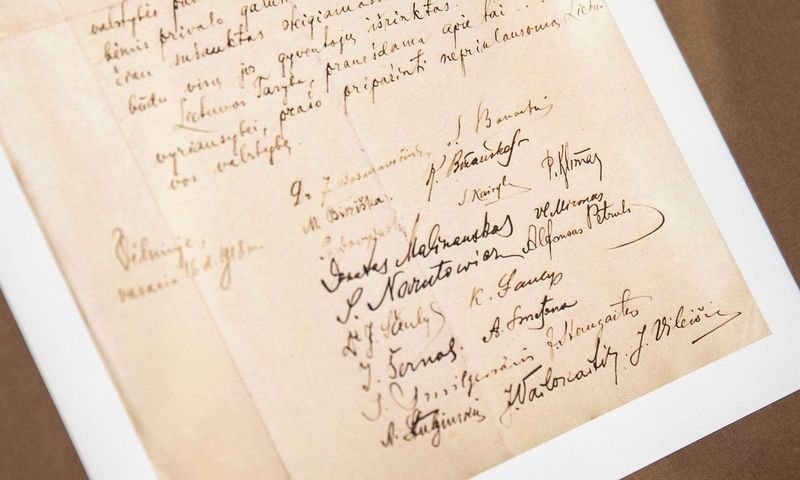 valstybės
bėmis privalo
čiau sušauktas steigiamas
būdu visų jos gyventojų išrinktas.
Lietuvos Taryba, pranešdama apie tai . .
vyriausybei, prašo pripažinti nepriklausomą Lietu-
vos valstybę.
Vilniuje,
vasario 16 d. 1918 m.
Dr J. Basanavičius S. Banaitis
M. Biržiška. K. Bizauskas
S Kairys P. Klimas
Donatas Malinauskas Vl. Mironas
S. Narutowicz Alfonsas Petrulis
Dr J. Šaulys K. Šaulys
J. Šernas. A. Smetona
J. Smilgevičius J. Staugaitis
A. Stulginskis J. Vailokaitis. J. Vileišis